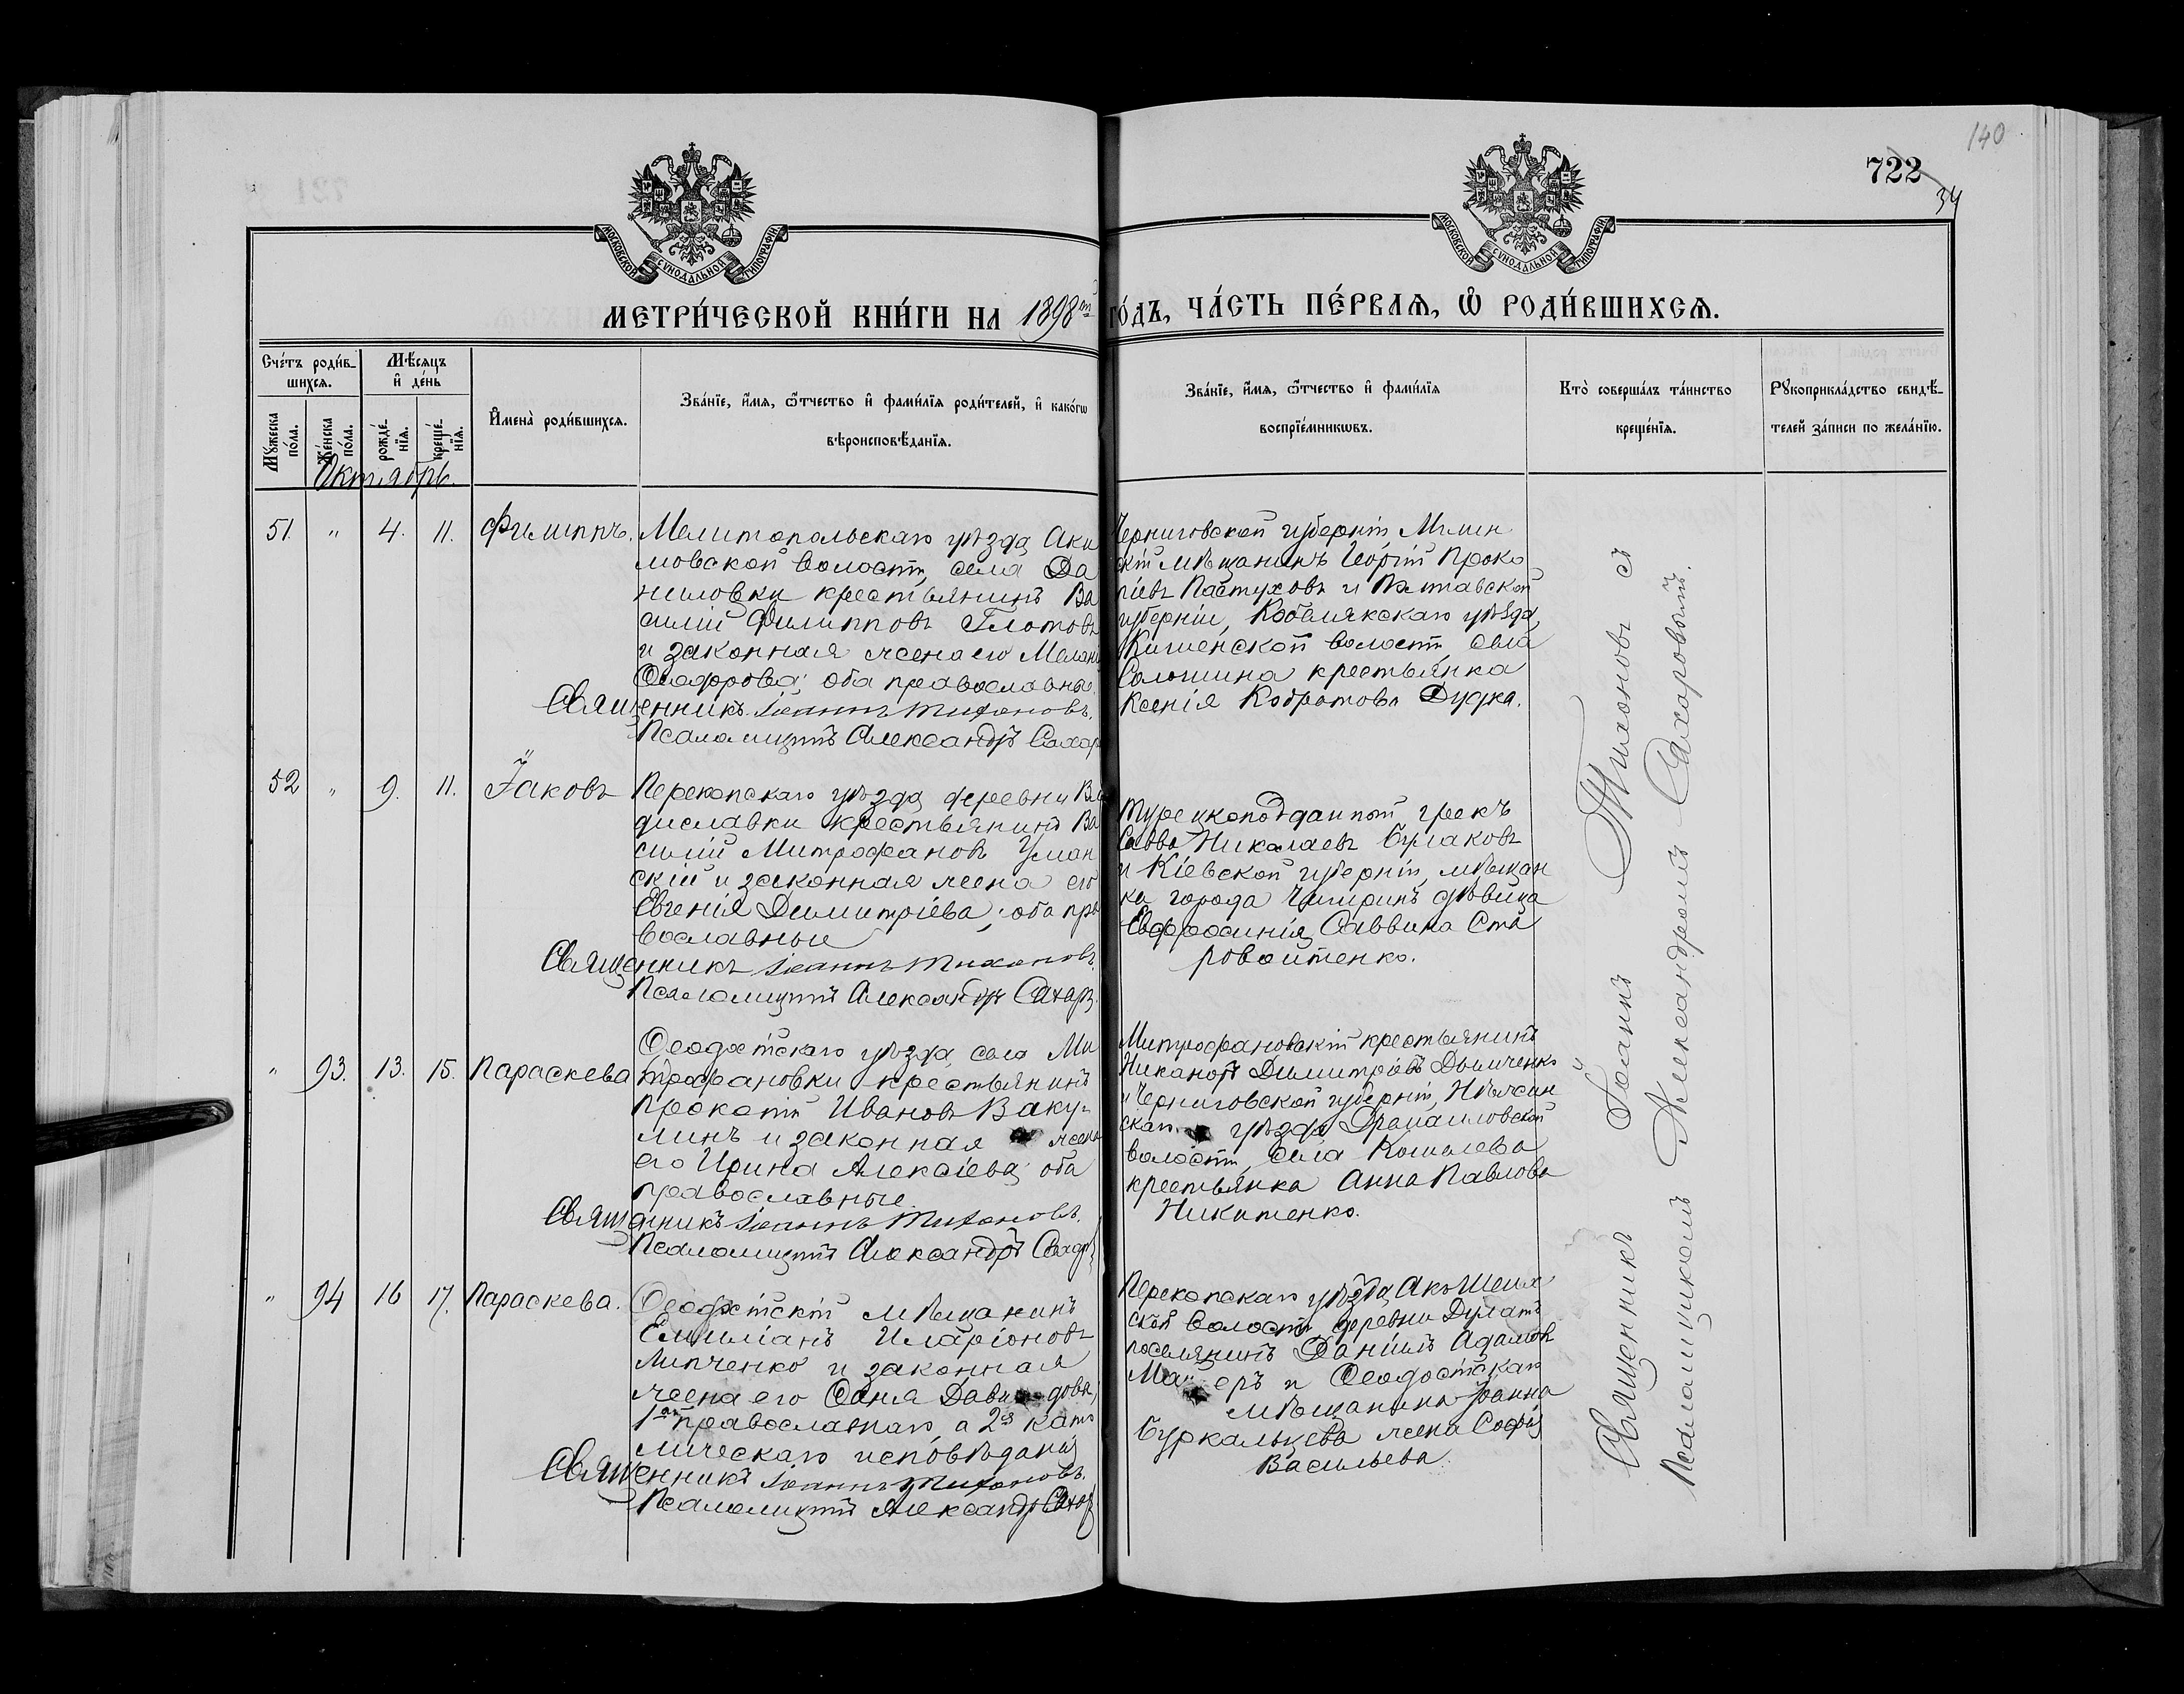 140
722
34
МОСКОВСКОЙ СУНОДАЛЬНОЙ ТИПОГРАФІИ
МОСКОВСКОЙ СУНОДАЛЬНОЙ ТИПОГРАФІИ
МЕТРИ́ЧЕСКОЙ КНИ́ГИ НА 1898 го́дъ, ЧА́СТЬ ПЕ́РВАѦ, Ѡ҆ РОДИ́ВШИХСѦ.
Сче́тъ роди́в-
шихсѧ.
Мѣ́сѧцъ
и҆ де́нь
Мꙋ́жеска по́ла.
Же́нска по́ла.
рожде́-нїѧ.
креще́-нїѧ.
И҆мена̀ роди́вшихсѧ.
Зва́нїе, и҆́мѧ, ѻ҆́тчество и҆ фами́лїѧ роди́телей, и҆ како́гѡ
вѣроисповѣ́данїѧ.
Зва́нїе, и҆́мѧ, ѻ҆́тчество и҆ фами́лїѧ
воспрїе́мникѡвъ.
Кто̀ соверша́лъ та́инство
креще́нїѧ.
Рꙋкоприкла́дство свидѣ́-
телей за́писи по жела́нїю.
Октябрь.
51. " 4. 11. Филиппъ.
Мелитопольскаго уѣзда Аки
мовской волости, села Да
ниловки крестьянинъ Ва
силій Филипповъ Глотовъ
и законная жена его Мелані
Ѳеодорова; оба православные.
Священникъ Іоаннъ Тихоновъ.
Псаломщикъ Александръ Сахар
Черниговской губерніи, Мглин
скій мѣщанинъ Георгій Проко
піевъ Пастуховъ и Полтавской
губерніи, Кобелякскаго уѣзда,
Кишенской волости, села
Солошина крестьянка
Ксенія Кодратова Дудка.
52 " 9. 11. Іаковъ
Перекопскаго уѣзда деревни Вла
диславки крестьянинъ Ва
силій Митрофановъ Уман
скій и законная жена его
Евгенія Димитріева; оба пра
вославные
Священникъ Іоаннъ Тихоновъ.
Псаломщикъ Александръ Сахар
Турецкоподданный грекъ
Савва Николаевъ Булаковъ
и Кіевской губерніи, мѣщан
ка города Чигиринъ дѣвица
Евфросинія Саввина Ста
ровойтенко.
" 93. 13. 15. Параскева
Ѳеодосійскаго уѣзда, села Ми
трофановки крестьянинъ
Прокопій Ивановъ Ваку-
линъ и законная жена
его Ирина Алексіева; оба
православные.
Священникъ Іоаннъ Тихоновъ.
Псаломщикъ Александръ Сахар
Митрофановскій крестьянинъ
Никаноръ Димитріевъ Дымченко
и Черниговской губерніи, Нѣжин
скаго уѣзда Драпаиловской
волости, села Кошелева
крестьянка Анна Павлова
Никитенко.
" 94 16 17. Параскева.
Ѳеодосійскій мѣщанинъ
Емиліанъ Иларіоновъ
Липченко и законная
жена его Ѳекла Давидова,
1ый православнаго, а 2ая като
лическаго исповѣданія
Священникъ Іоаннъ Тихоновъ.
Псаломщикъ Александръ Сахар
Перекопскаго уѣзда, Акъ Шеих
ской волости, деревни Дулатъ
поселянинъ Даніилъ Адамовъ
и Ѳеодосійскаго
мѣщанина Іоанна
жена Софія
Васильева.
Священникъ Іоаннъ Тихоновъ съ
Псаломщикомъ Александромъ Сахаровымъ.